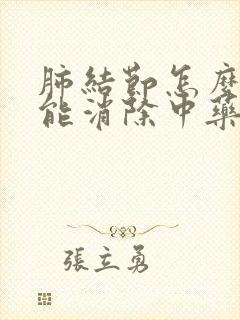 肺結節怎麼
能消除中藥
張立勇